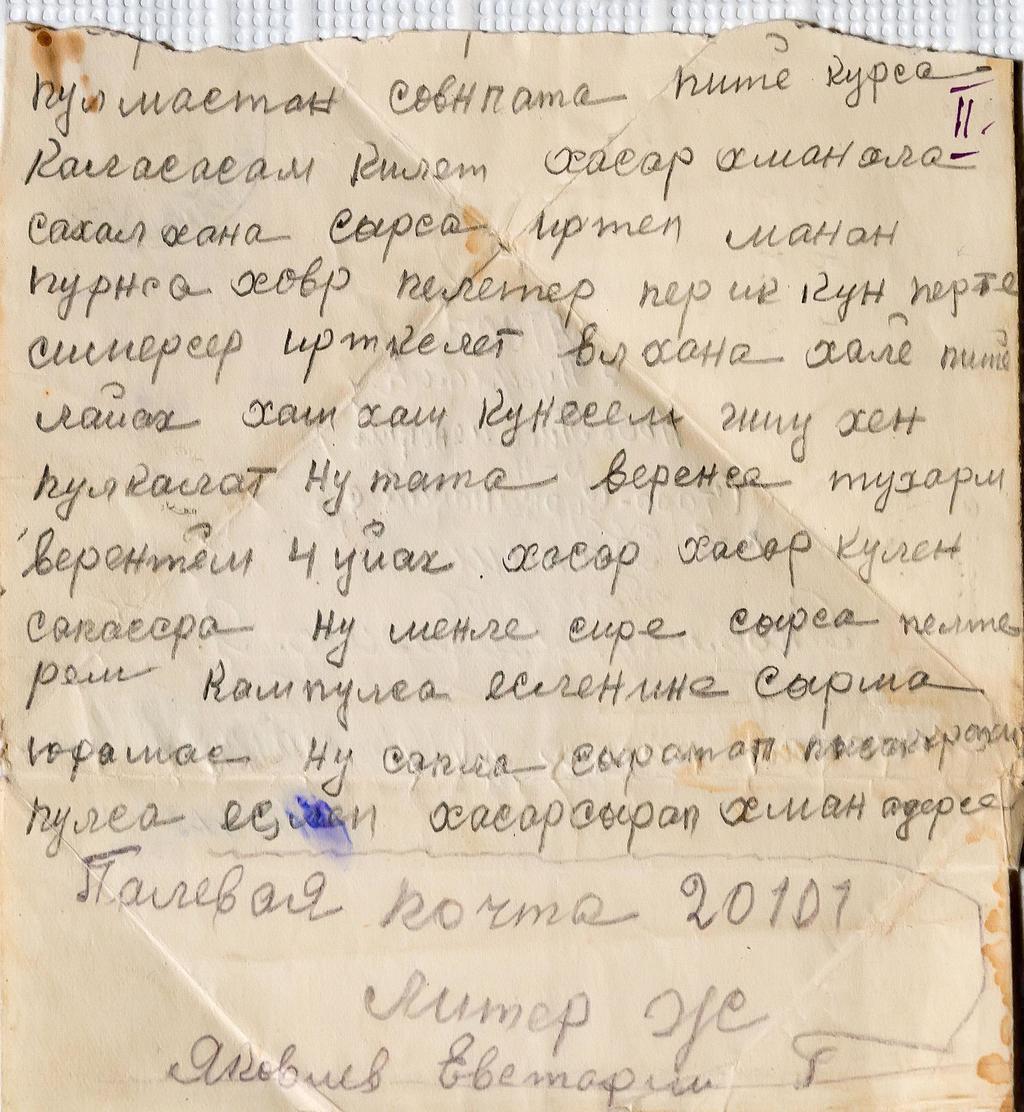 пулмастан совнпата пите курса
II.
каласасам килет хасар хманала
сахал хана сырса иртеп манан
пурнса ховр пелетер пер ик кун перте
симерсер иртвелет вл хана хале пите
лайах хаш хаш кунесем шу хен
пулкалат Ну тата веренсе тухарм
верентём 4 уйах хасар хасар кулен
сапассра Ну менле сире сырса пелте
рем Кампулса есленине сырма
юрамас Ну сапла сыратап
пулса хасарсырап хман адерсе
Палевая почта 20101
Литер Ж
Яковлев Евстафии Т